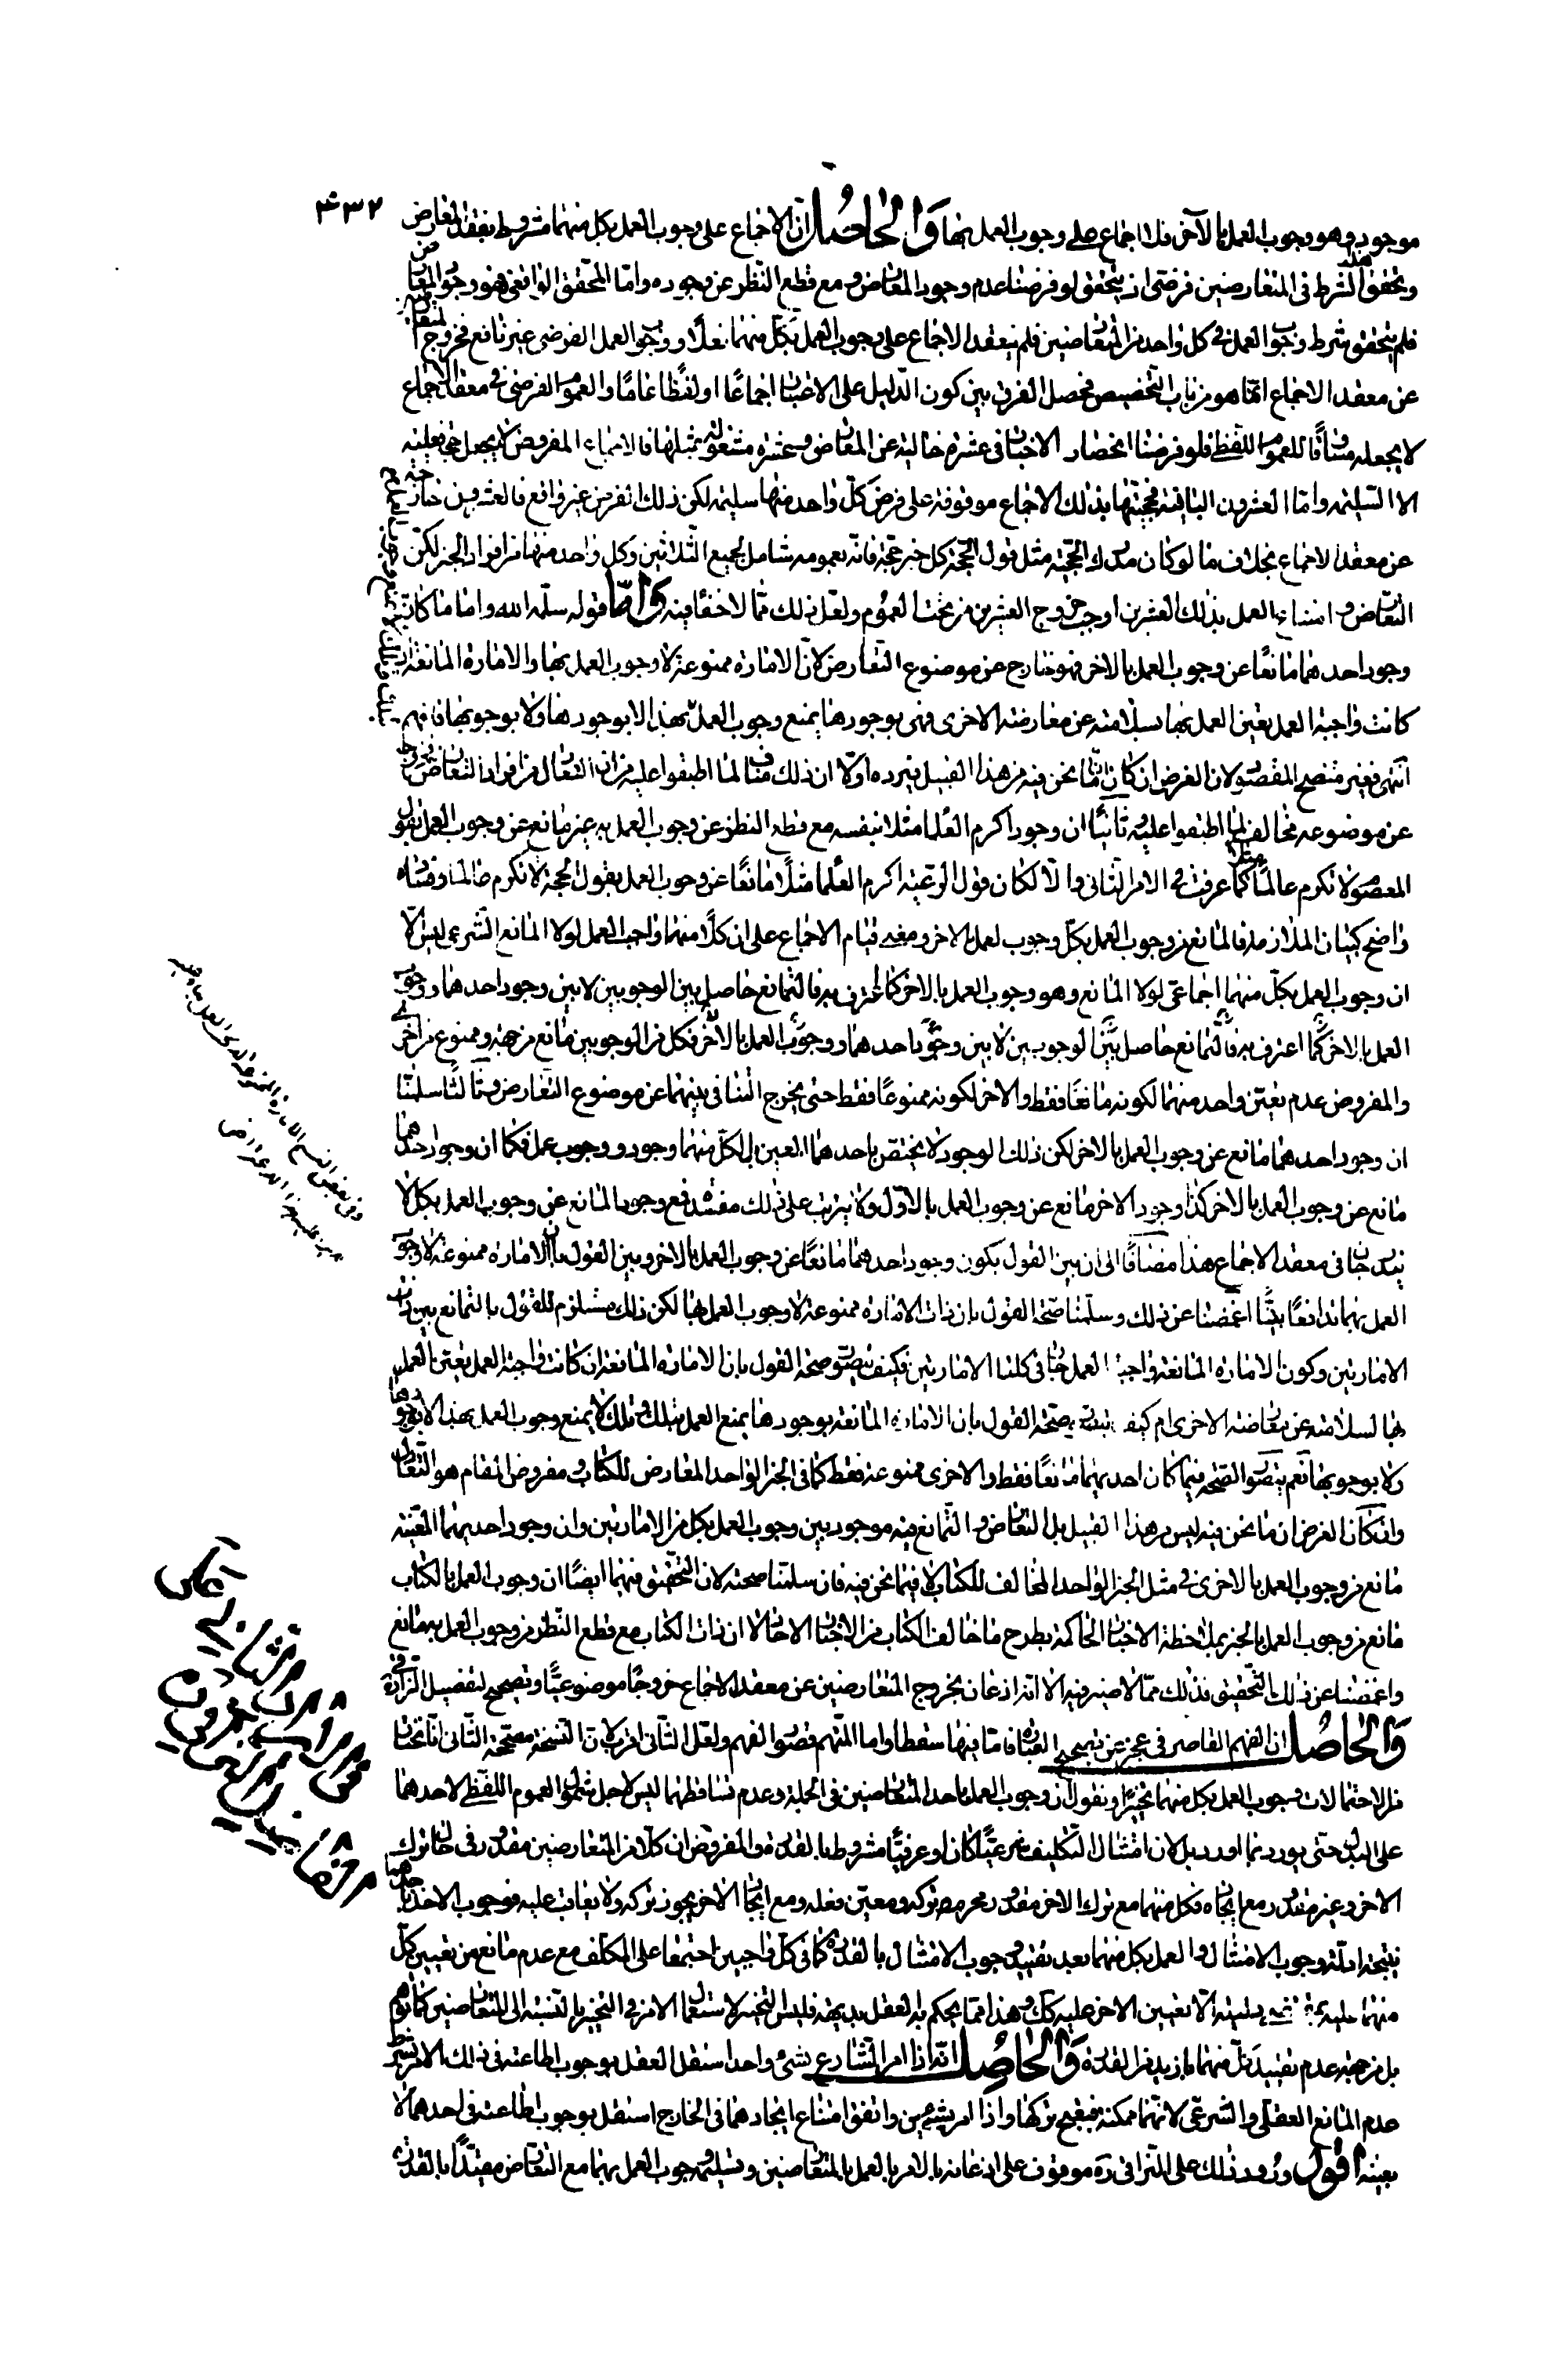 ۴۳۲
موجود وهو وجوب العمل بالآخر فلا اجماع على وجوب العمل بها والحاصل ان الاجماع على وجوب العمل بكل منهما مشروط بفقد المعارض
وتحقق الشرط فى المتعارضين فرضى اذ يتحقق لو فرضنا عدم وجود المعارض ومع قطع النظر عن وجوده واما المحقق الواقعى فهو وجود المعارض
فلم يتحقق شرط وجوب العمل فى كل واحد من المتعارضين فلم ينعقد الاجماع على وجوب العمل بكل منهما فعلا ووجوب العمل الفرضى غير نافع فخروج المتعارضين
عن معقد الاجماع انما هو من باب التخصيص فحصل الفرق بين كون الدليل على الاخبار اجماعًا او لفظًا عامًا والعموم الفرضى فى معقد الاجماع
لا يجعله مساوقا للعموم اللفظى فلو فرضنا انحصار الاخبار فى عشرة خالية عن المعارض وعشرة مشغولة بمثلها فالاجماع المفروض لا يجعل حجة فعلية
الا السليمة واما العشرون الباقية فحجيتها بذلك الاجماع موقوفة على فرض كل واحد منها سليمة لكن ذلك الفرض غير واقع فالعشرون خارجة
عن معقد الاجماع بخلاف ما لو كان مدرك الحجية مثل قول الحجة كل خبر حجة فانه بعمومه شامل لجميع الثلاثين وكل واحد منها من افراد الخبر لكن
التعارض وامتناع العمل بذلك العشرين اوجب خروج العشرين من تحت العموم ولعل ذلك مما لا خفاء فيه واما قوله سلمه الله واما ما كان
وجود احدهما مانعًا عن وجوب العمل بالاخر فهو خارج عن موضوع التعارض لان الامارة ممنوعة لا وجوب العمل بها والامارة المانعة ان
كانت واجبة العمل يعين العمل بها لسلامته عن معارضة الاخرى فهى بوجودها يمنع وجوب العمل بهذا لا بوجودها ولا بوجوبها فافهم
انتهى فغير متضح المقصود لان الغرض ان كان ان ما نحن فيه من هذا القبيل فيرده اولا ان ذلك مناف لما اطبقوا عليه من ان التعادل من افراد التعارض
عن موضوعه مخالف لما اطبقوا عليه وثانيًا ان وجود اكرم العلماء مثلا بنفسه مع قطع النظر عن وجوب العمل به غير مانع عن وجوب العمل بقول
المعصوم لا تكرم عالما كما عرفت فى الامر الثانى والا لكان قول الرعية اكرم العلماء مثلًا مانعًا عن وجوب العمل بقول الحجة لا تكرم ظالما وفساده
واضح كبيان الملازمة فالمانع من وجوب العمل بكل وجوب العمل بالاخر ومعنى قيام الاجماع على ان كلا منهما واجب العمل لولا المانع الشرعى ليس الا
ان وجوب العمل بكل منهما اجماعى لولا المانع وهو وجوب العمل بالاخر كما اعترف به فالتمانع حاصل بين الوجوبين لا بين وجود احدهما ووجوب
العمل بالاخر كما اعترف به فالتمانع حاصل بين الوجوبين لا بين وجود احدهما ووجوب العمل بالاخر فكل من الوجوبين مانع من جهة وممنوع من اخرى
والمفروض عدم تعين واحد منهما لكونه مانعًا فقط والاخر لكونه ممنوعًا فقط حتى يخرج التنافى بينهما عن موضوع التعارض وثالثًا سلمنا
ان وجود احدهما مانع عن وجوب العمل بالاخر لكن ذلك الوجود لا يختص باحدهما المعين بل لكل منهما وجود ووجوب عمل فكما ان وجود احدهما
مانع عن وجوب العمل بالاخر كذا وجود الاخر مانع عن وجوب العمل بالاول ولا يترتب على ذلك مفسدة فمع وجود المانع عن وجوب العمل بكل لا
يندرجان فى معقد الاجماع هذا مضافًا الى ان بين القول بكون وجود احدهما مانعًا عن وجوب العمل بالاخر وبين القول بان الامارة ممنوعة لا وجوب
العمل بهما تدافعًا بينًا اغمضنا عن ذلك وسلمنا صحة القول بان ذات الامارة ممنوعة لا وجوب العمل بها لكن ذلك مستلزم للقول بالتمانع بين ذات
الامارتين وكون الامارة المانعة واجبة العمل جار فى كلتا الامارتين فكيف يتصور صحة القول بان الامارة المانعة ان كانت واجبة العمل يعين العمل
بها لسلامته عن معارضة الاخرى ام كيف يتصور صحة القول بان الامارة المانعة بوجودها يمنع العمل بتلك وتلك لا يمنع وجوب العمل بهذا لا بوجودها
ولا بوجوبها نعم يتصور الصحة فيما كان احديهما مانعًا فقط والاخرى ممنوعة فقط كما فى الخبر الواحد المعارض للكتاب ومفروض المقام هو التعادل
وان كان الغرض ان ما نحن فيه ليس من هذا القبيل بل التعارض والتمانع فيه موجود بين وجوب العمل بكل من الامارتين وان وجود احديهما المعينة
مانع من وجوب العمل بالاخرى فى مثل الخبر الواحد المخالف للكتاب لا فيما نحن فيه فان سلمنا صحته لان التحقيق فيهما ايضًا ان وجوب العمل بالكتاب
مانع من وجوب العمل بالخبر بملاحظة الاخبار الحاكمة بطرح ما خالف الكتاب من الاخبار الاحاد لا ان ذات الكتاب مع قطع النظر من وجوب العمل به مانع
واغمضنا عن ذلك التحقيق فذلك مما لا ضير فيه الا انه اذعان بخروج المتعارضين عن معقد الاجماع خروجًا موضوعيًا وتصحيح لتفصيل النراقى ره
والحاصل ان الفهم القاصر فى عجز عن تصحيح العبارة فاما فيها سقط او اما المتهم قصور الفهم ولعل الثانى اقرب لان النسخة مصححة الثانى انا نختار
من الاحتمالات وجوب العمل بكل منهما تخييرًا ونقول ان وجوب العمل باحد المتعارضين فى الجملة وعدم تساقطهما ليس لاجل شمول العموم اللفظى لاحدهما
على البدل حتى يورد بما اورد بل لان امتثال التكليف شرعيًا كان او عرفيًا مشروط بالقدرة والمفروض ان كلا من المتعارضين مقدور فى حال ترك
الاخر وغير مقدور مع ايجاده فكل منهما مع ترك الاخر مقدور محرم تركه ومعين فعله ومع ايجاد الاخر يجوز تركه ولا يعاقب عليه فوجوب الاخذ باحدهما
نتيجة ادلة وجوب الامتثال والعمل بكل منهما بعد تقييد وجوب الامتثال بالقدرة كما فى كل واجبين اجتمعا على المكلف مع عدم مانع من تعيين كل
منهما عليه الا تعيين الاخر عليه كك وهذا مما يحكم به العقل بديهة فليس التخيير لاستعمال الامر فى التخيير بالنسبة الى المتعارضين كما توهم
بل من جهة عدم تقييد كل منهما بازيد من القدرة والحاصل انه اذا امر الشارع بشئ واحد استقل العقل بوجوب اطاعته فى ذلك الامر بشرط
عدم المانع العقلى والشرعى لانهما ممكنة فيقبح تركها واذا امر بشيئين واتفق امتناع ايجادهما فى الخارج استقل بوجوب اطاعته فى احدهما لا
بعينه اقول ورود ذلك على النراقى ره موقوف على اذعانه بالامر بالعمل بالمتعارضين وتسليمه وجوب العمل بهما مع التعارض مقيدًا بالقدرة